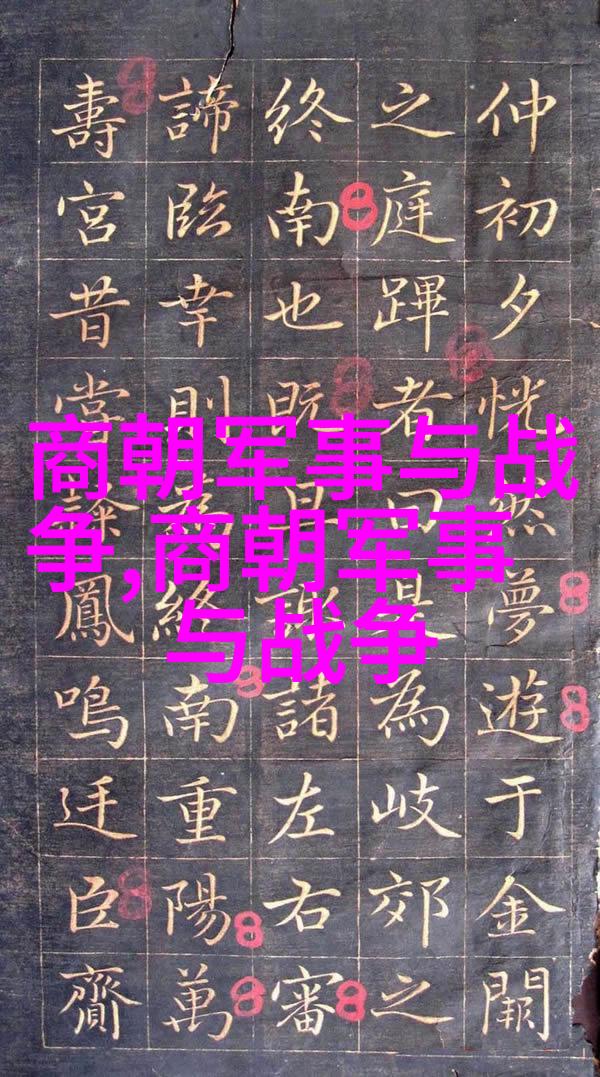 商朝军事与战
争,商朝军事
与战争
仲初夕恍然夢遊于金闕
之庭蹕者是為岐郊之
終南也既諸左右審
諦臨幸則終南重陽萬
壽宮昔嘗鳳鳴廷臣齎